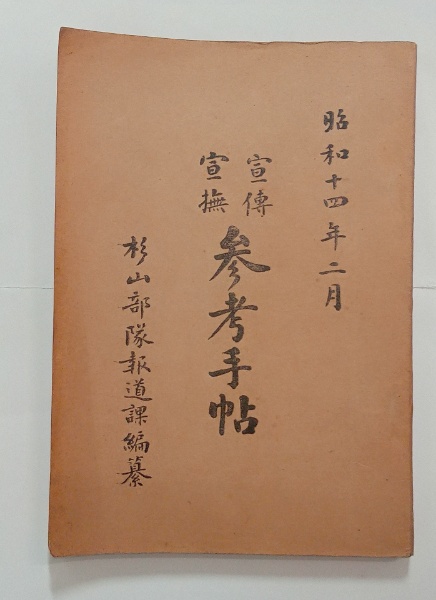 昭和十四年二月
宣傳
宣撫
参考手帖
杉山部隊報道課編纂